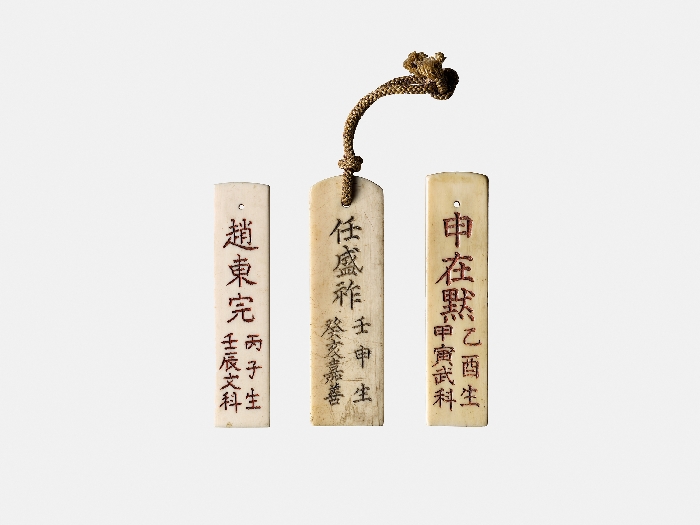 趙東完
丙子生
壬辰文科
任盛祚
壬申生
癸亥嘉善
申在默
乙酉生
甲寅武科